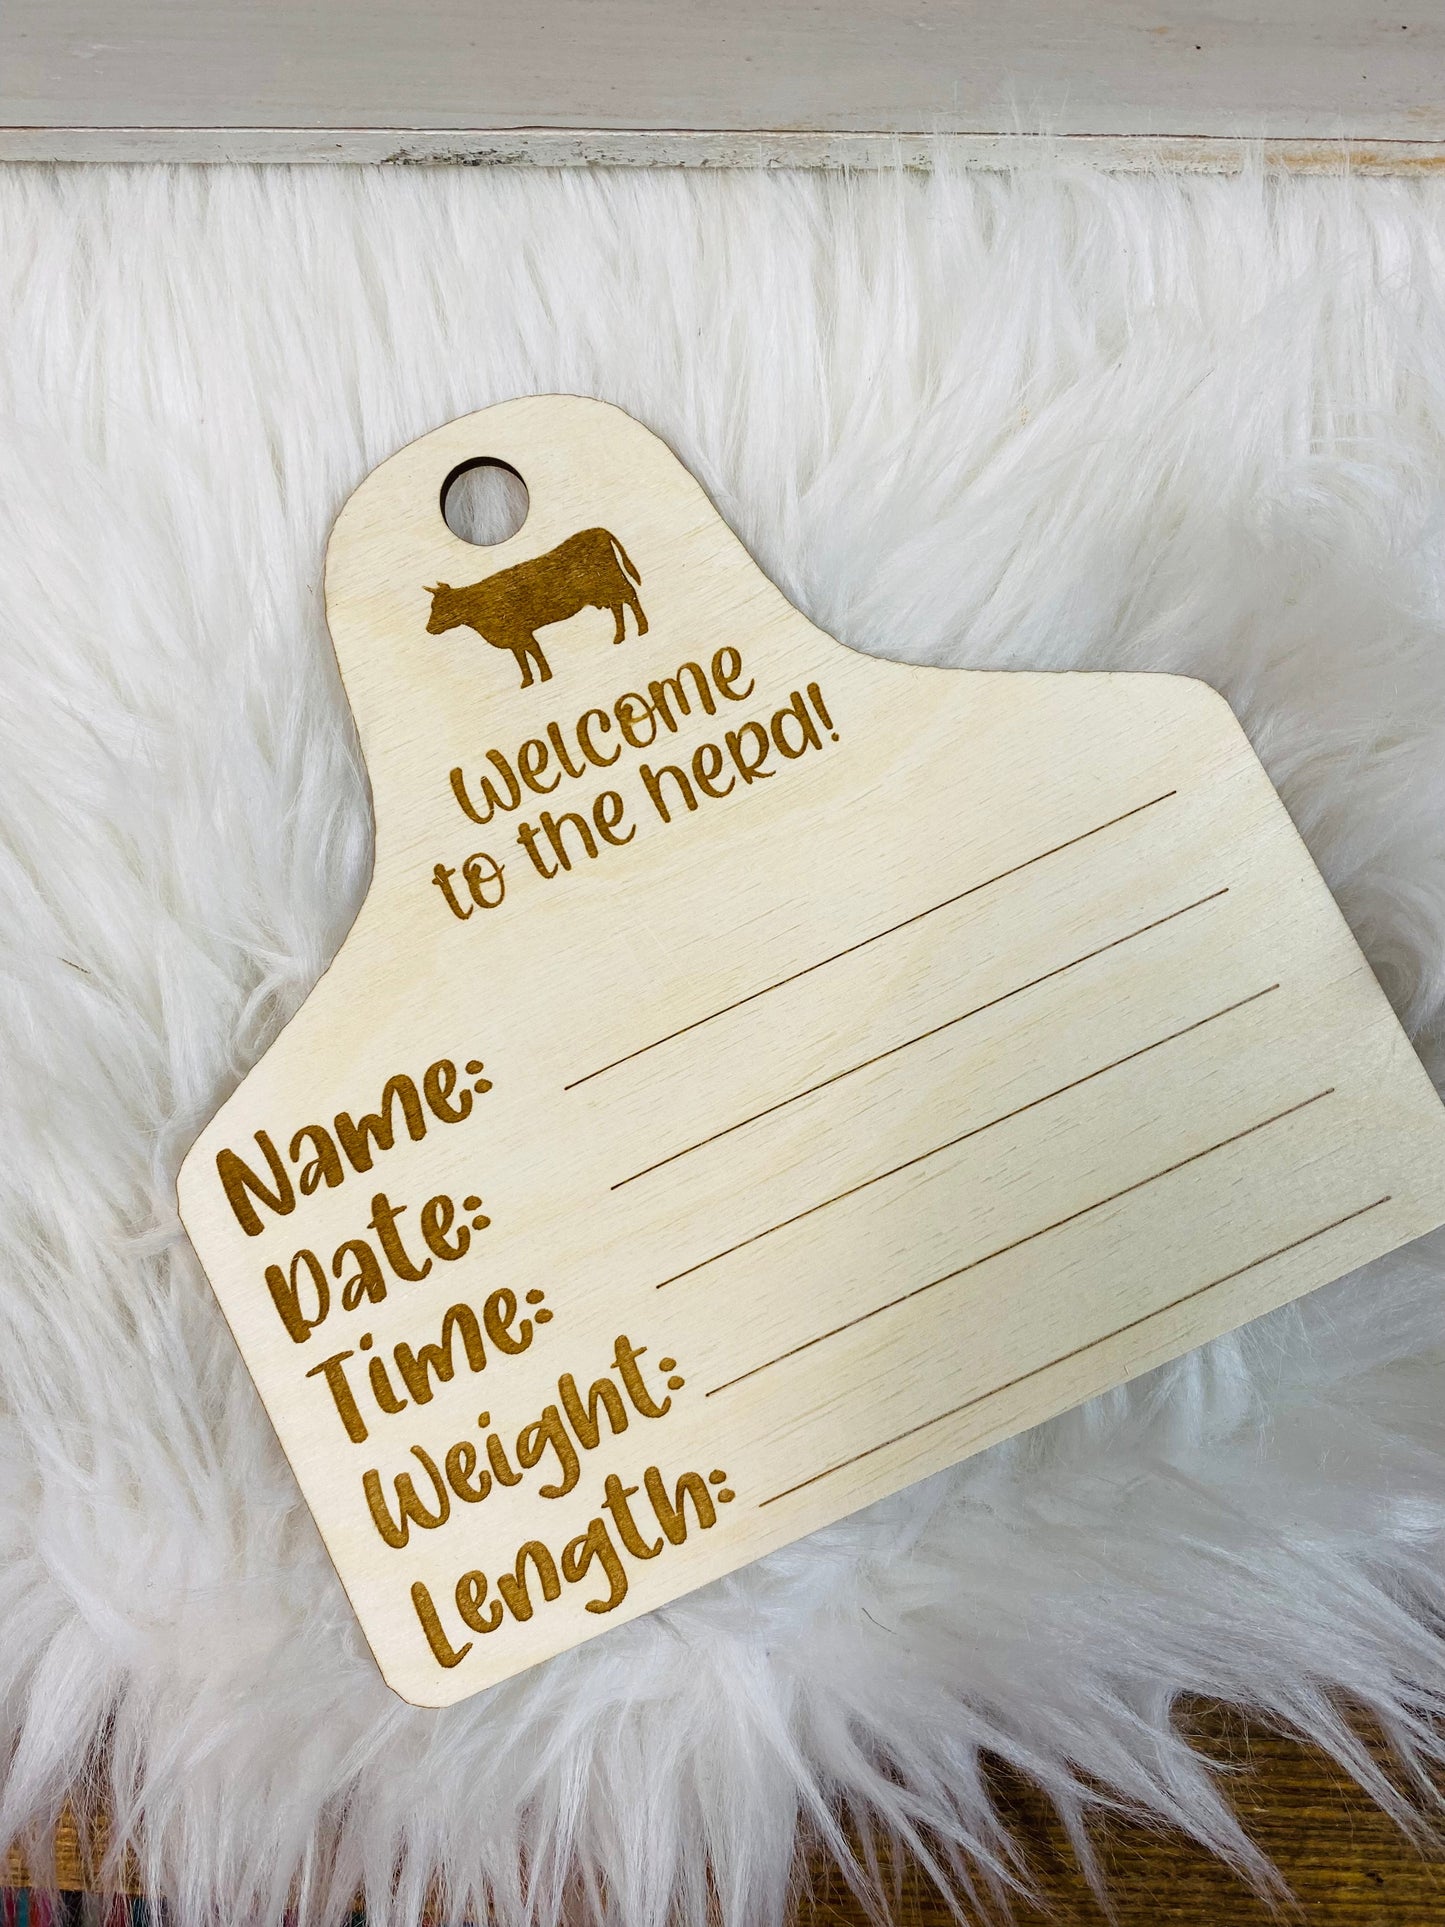 Welcome
to the herd!
Name:
Date:
Time:
Weight:
Length: